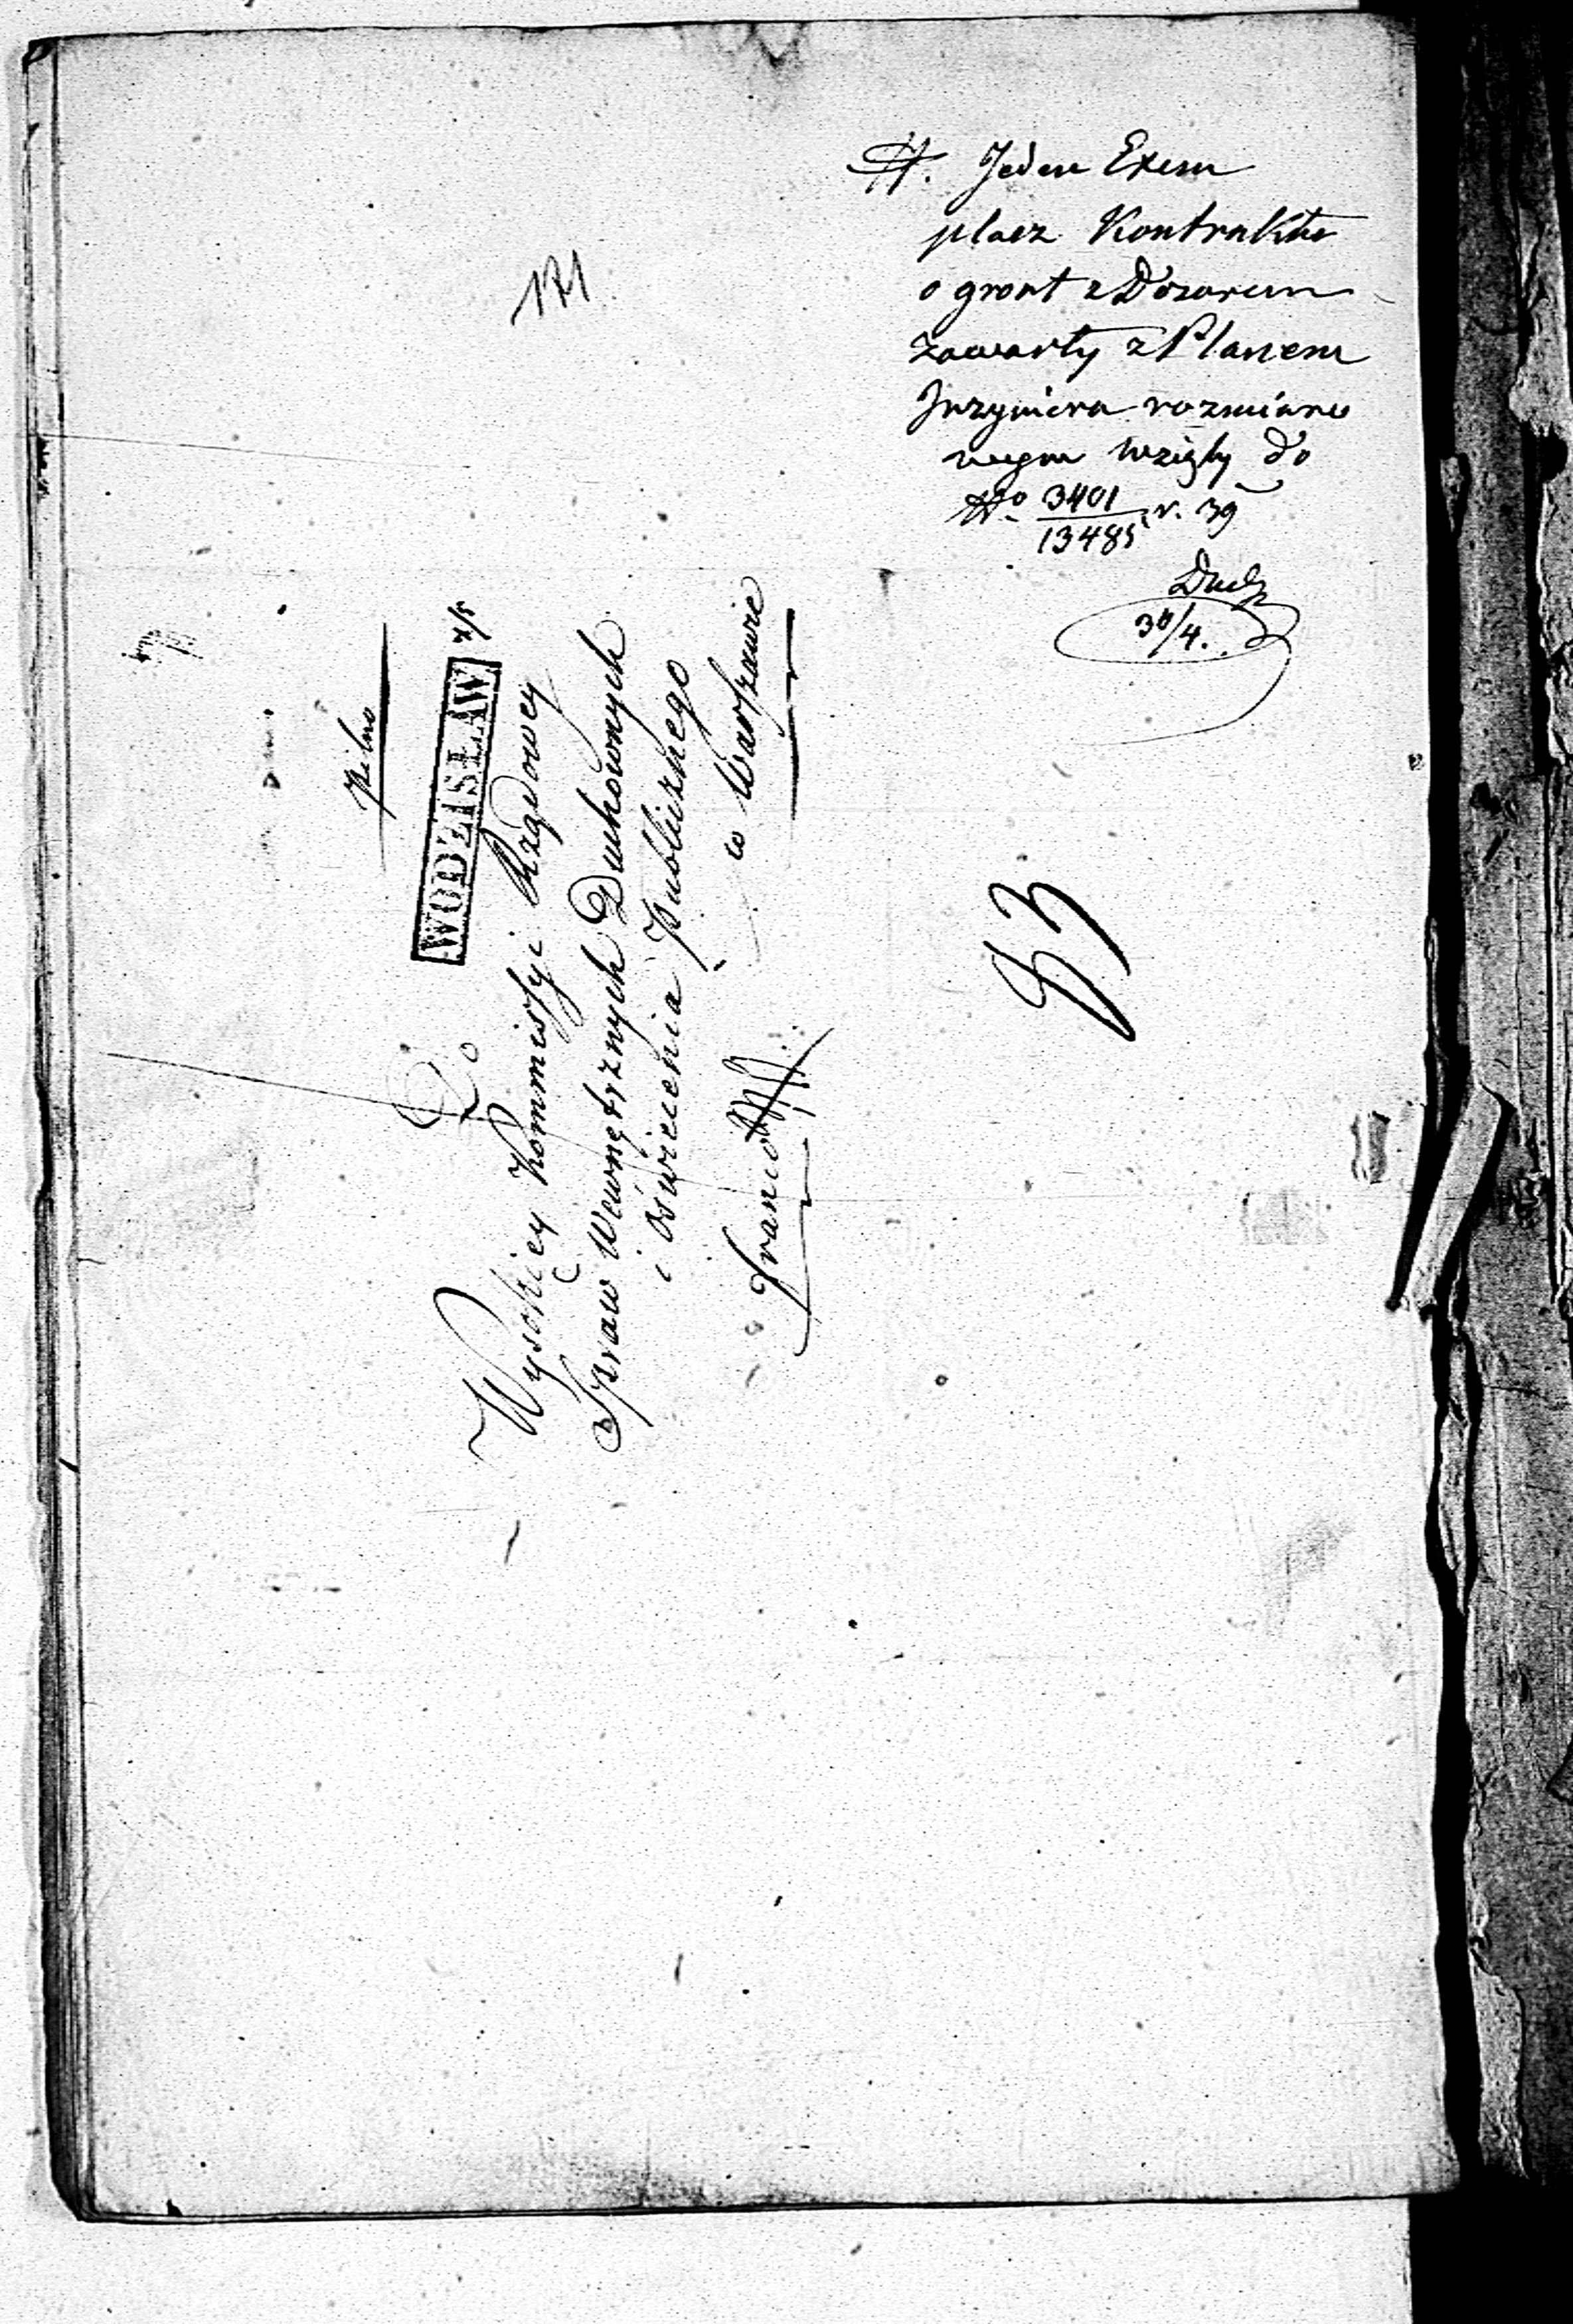 #. Jeden Exem
plarz Kontraktu
o gront z Dozorem
zawarty z Planem
Inzyniera rozmiaro
wegm wzięty do
No 3401/13485 r. 39
30/4.
Pilno
WODZISŁAW 2/5
Do
Wysokiey Kommissyi Rządowey
Spraw Wewnętrznych Duchownych
i Oświecenia Publicznego
w Warszawie
Franco